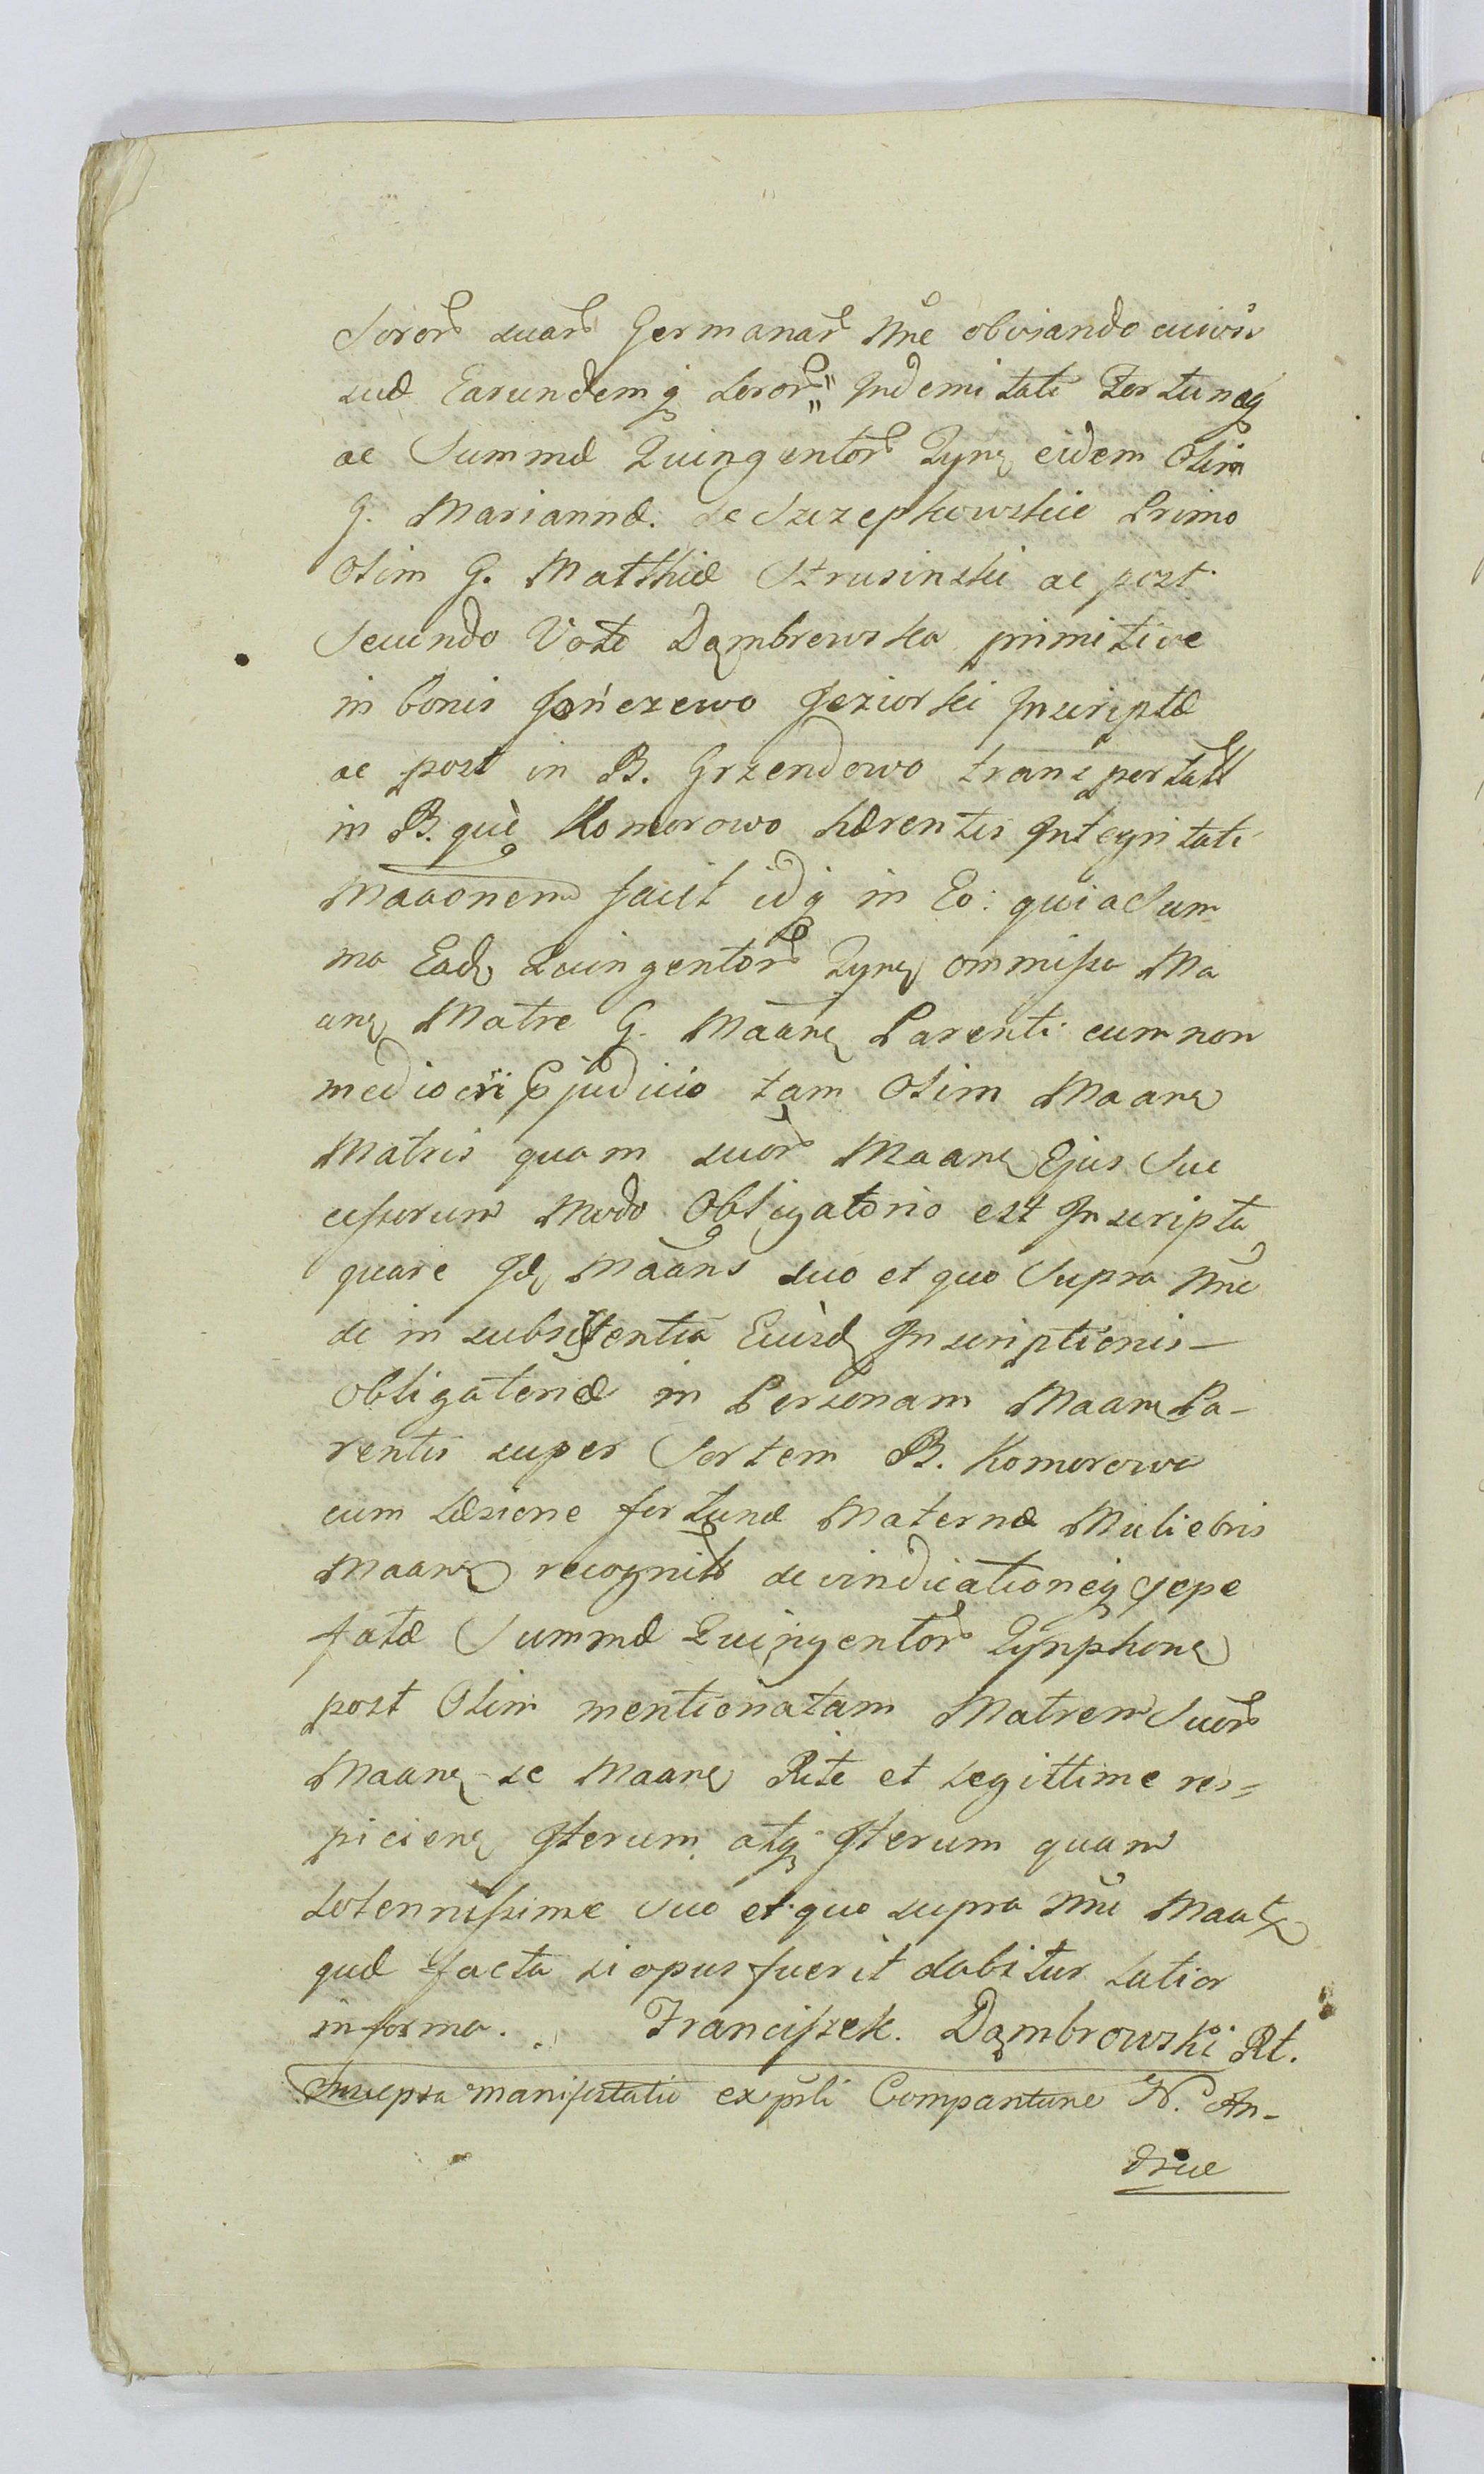 Soror suar Germanar Nne obviando
suæ Earundemq soror Indemitati Fortunæq
ac Summæ Quingentor Tynf eidem Olim
G. Mariannæ. de Szczepkowskie Primo
Olim G. Matthiæ Strusinski ac post
Secundo Voto Dąmbrowska primitive
in bonis Jończewo Jeziorki Inscriptæ
ac post in B. Grzendowo transportatt
in B. què Komorowo hærentis Integritati
Maaonem facit idq in Eo: quia Sum
ma Ead Quingentor Tynf ommissa Ma
ane Matre G. Maane Parenti cum non
mediocri Pjudicio tam Olim Maane
Matris quam suor Maane Ejus Suc
cessorum Modo Obligatorio est Inscripta
quare Id Maans suo et quo Supra Nne
de in subsistentia Euisd Inscriptionis –
Obligatoriæ in Personam Maane Pa-
rentis super Sortem B. Komorowo
cum Læsione fortunæ Maternæ Muliebris
Maane recognit de vindicationeq sepe
fatæ Summæ Quingentor Tynphone
post Olim mentionatam Matrem Suor
Maane se Maane Rite et Legittime res=
piciene Iterum atq Iterum quam
Solennissime suo et quo supra Nne Maatr
quæ facta si opus fuerit dabitur Latior
in forma. Franciszek. Dąmbrowski Rt.
Suscepta manifestatio ex prli Comparitione N. An-
dreæ